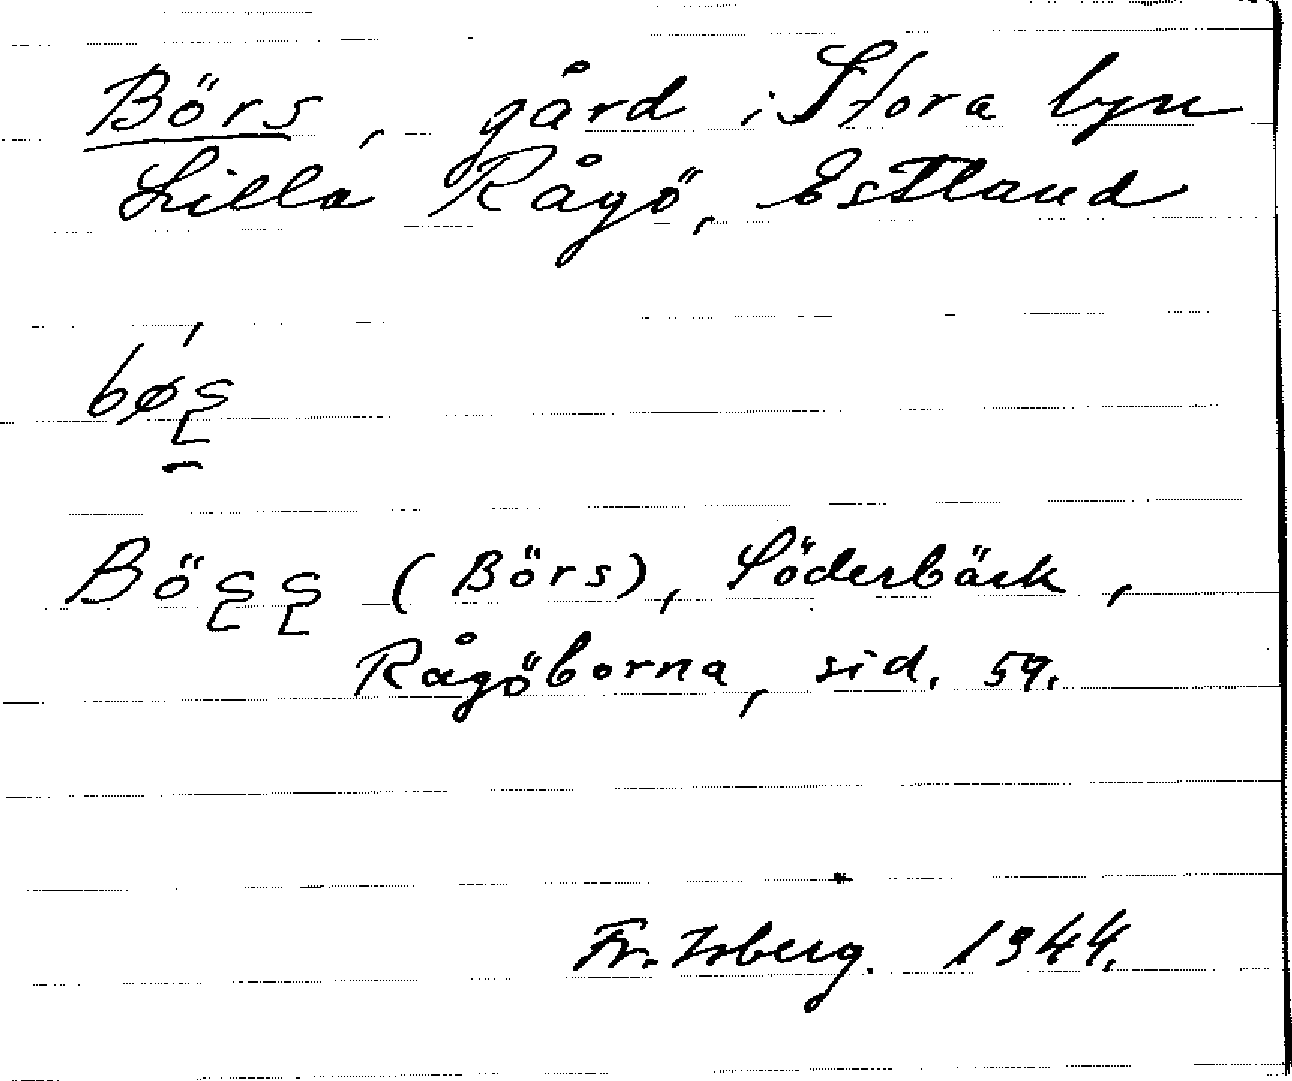 Börs, gård i Stora byn
Lilla Rågö, Estland
bø̀ʂ
Böʂʂ (Börs), Söderbäck,
Rågöborna, sid. 59.
Fr. Isberg. 1944.